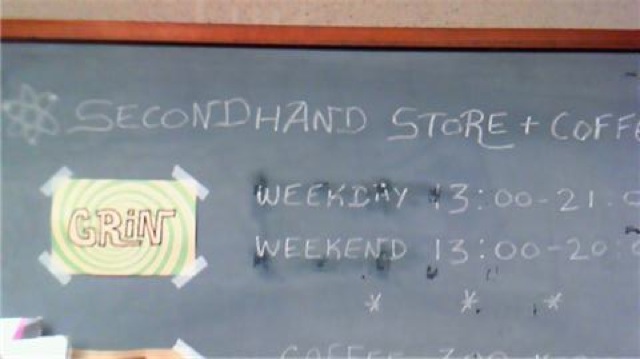 SECONDHAND STORE + COFFE
GRiN
WEEKDAY 13:00-21:0
WEEKEND 13:00-20:0
* * *
COFFEE